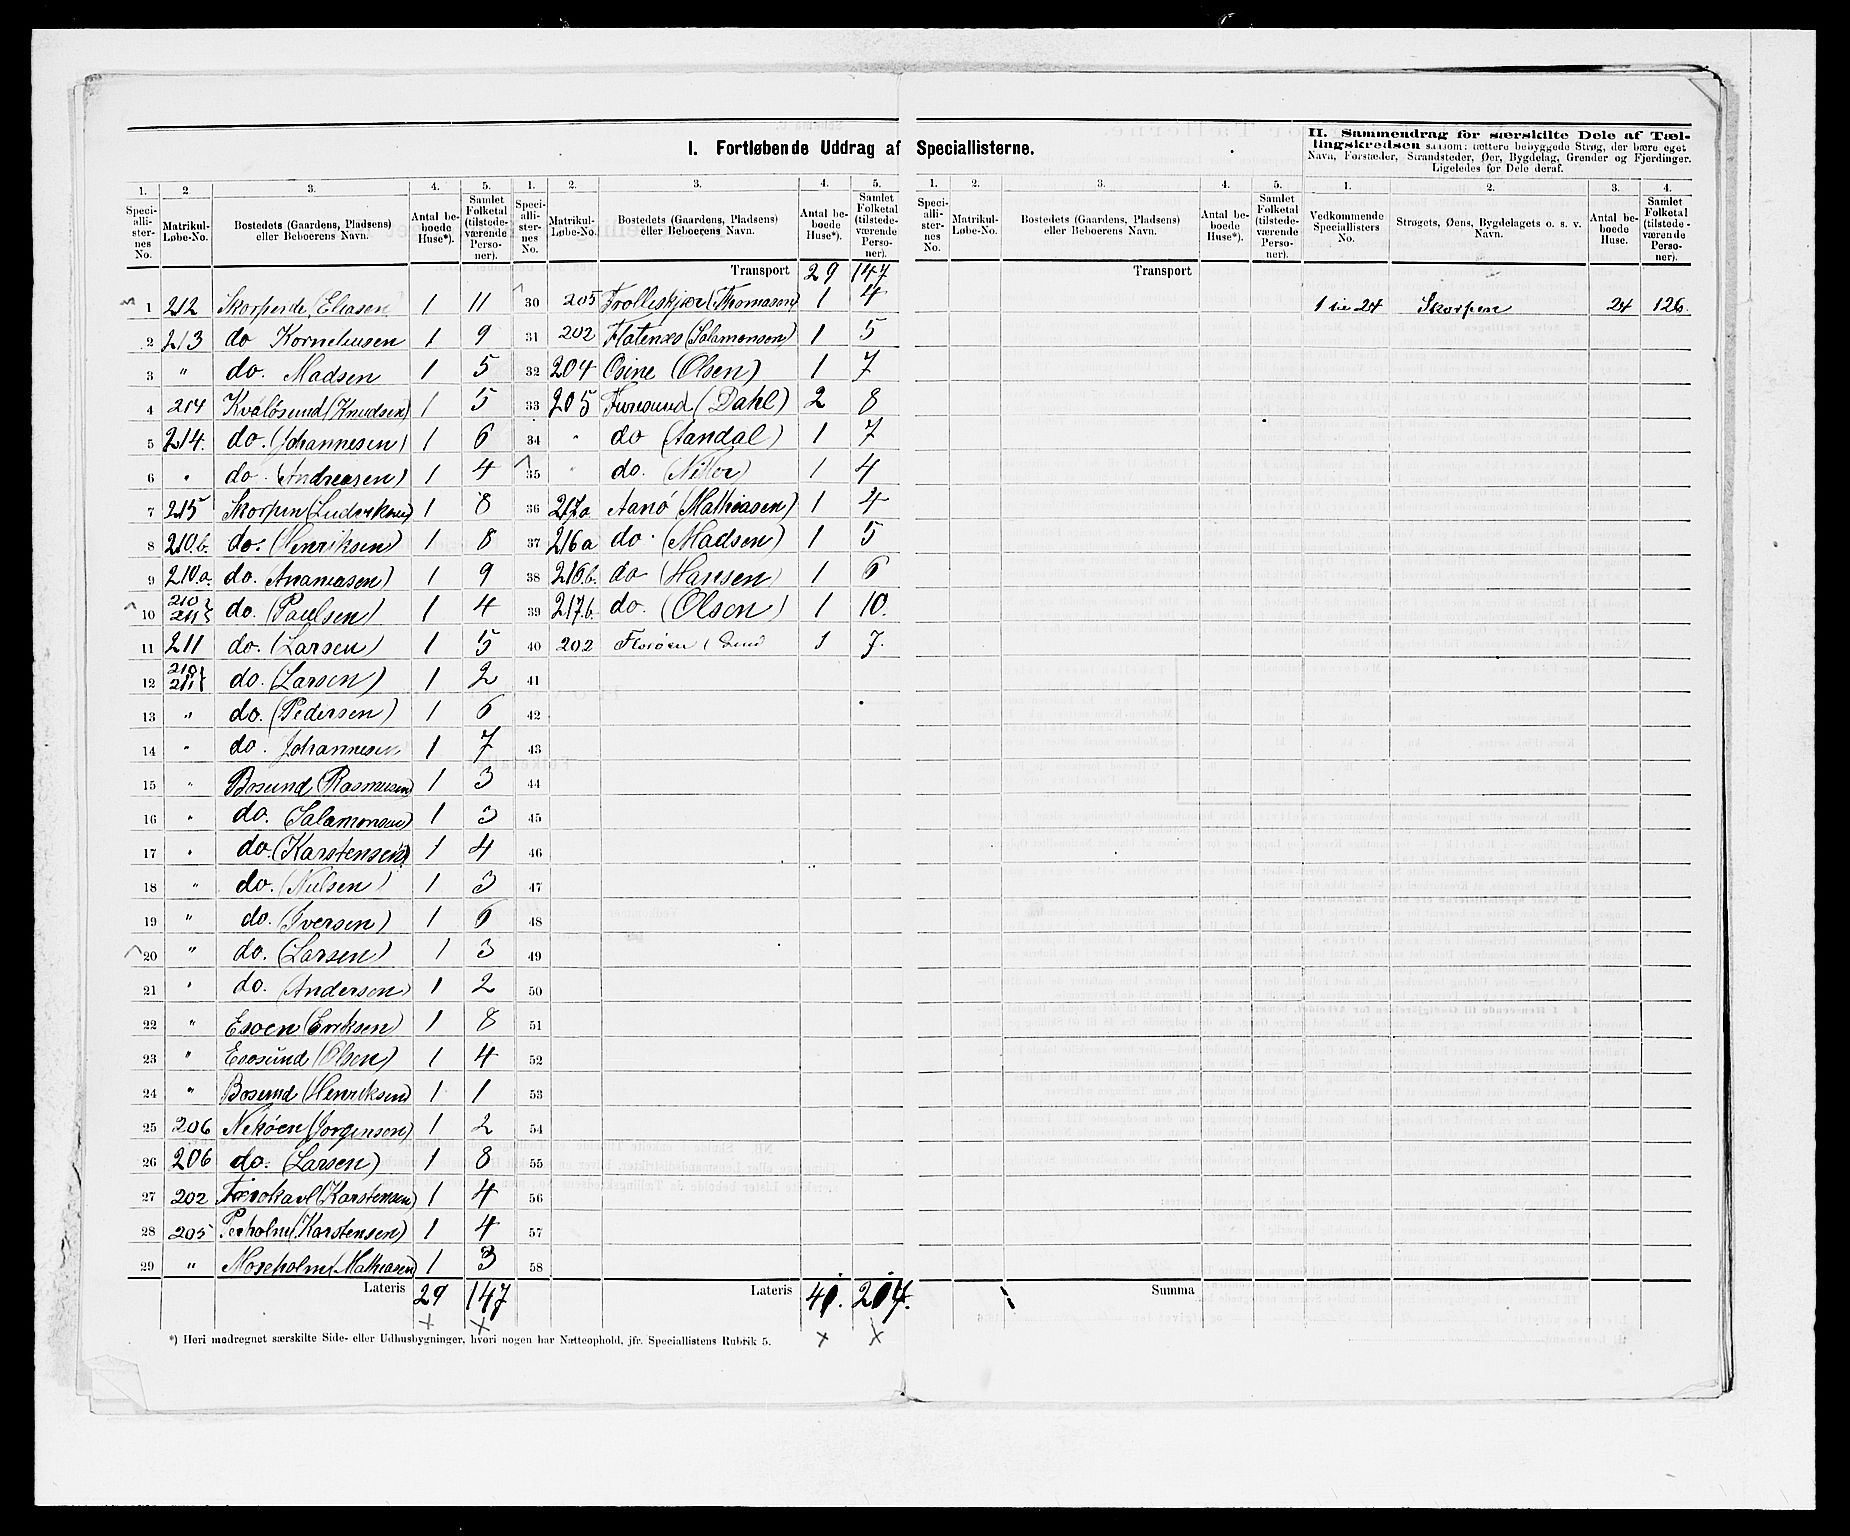 I. Fortløbende Uddrag af Speciallisterne.
II. Sammendrag for særskilte Dele af Tæl-
lingskredsen saasom: tættere bebyggede Strøg, der bære eget
Navn, Forstæder, Strandsteder, Øer, Bygdelag, Grender og Fjerdinger.
Ligeledes for Dele deraf.
1. 2 3. 4. 5. 1. 2. 3. 4. 5. 1. 2. 3. 4. 5. 1. 2. 3. 4.
Speci-alli-ster-nes No. Matrikul-Løbe-No. Bostedets (Gaardens, Pladsens) eller Beboerens Navn. Antal be-boede Huse*). Samlet Folketal (tilstede-værende Perso-ner).
Speci-alli-ster-nes No. Matrikul-Løbe-No. Bostedets (Gaardens, Pladsens) eller Beboerens Navn. Antal be-boede Huse*). Samlet Folketal (tilstede-værende Perso-ner).
Speci-alli-ster-nes No. Matrikul-Løbe-No. Bostedets (Gaardens, Pladsens) eller Beboerens Navn. Antal be-boede Huse*). Samlet Folketal (tilstede-værende Perso-ner).
Vedkommende Speciallisters No. Strøgets, Øens, Bygdelagets o. s. v. Navn. Antal be-boede Huse. Samlet Folketal (tilstede-værende Perso-ner).
1 212 (Eliasen) 1 11
2 213 do Korneliusen 1 9
3 " do. Madsen 1 5
4 214 Kvaløsund (Knudsen) 1 5
5 214. do. (Johannesen) 1 6
6 " do. (Andreasen) 1 4
7 215 Skorpen (Ludviksen) 1 8
8 210.b. do. (Henriksen) 1 8
9 210.a. do. Ananiasen) 1 9
10 210 211 } do. (Paulsen) 1 4
11 211 do. (Larsen) 1 5
12 210 211 } do. (Larsen) 1 2
13 " do. (Pedersen) 1 6
14 " do. Johannesen 1 7
15 " Bosund (Rasmusen) 1 3
16 " do. (Salamonsen) 1 3
17 " do. (Karstensen) 1 4
18 " do. (Nielsen) 1 3
19 " do. (Iversen) 1 6
20 " do. (Larsen) 1 3
21 " do. (Andersen) 1 2
22 " Esoen (Eriksen) 1 8
23 " Esosund (Olsen) 1 4
24 " Bosund (Henriksen) 1 1
25 206 Nekøen (Jorgensen) 1 2
26 206 do. (Larsen) 1 8
27 202 (Karstensen) 1 4
28 205 Perholm (Karstensen) 1 4
29 " Moseholm (Mathiasen) 1 3
Lateris 29 147
Transport 29 147
30 205 Trolleskjær (Thomasen) 1 4
31 202 Flatenes (Salamonsen) 1 5
32 204 Osine (Olsen) 1 7
33 205 Furesund (Dahl) 2 8
34 " do (Aandal) 1 7
35 " do. 1 4
36 217a Aanø (Mathiasen) 1 4
37 216a do. (Madsen) 1 5
38 216.b. do (Hansen) 1 6
39 217.b. do. (Olsen) 1 10.
40 202 1 7.
41
42
43
44
45
46
47
48
49
50
51
52
53
54
55
56
57
58
Lateris 41. 204.
Transport
Summa
24 Skorpen 24 126.
*) Heri medregnet særskilte Side- eller Udhusbygninger, hvori nogen har Natteophold, jfr. Speciallistens Rubrik 5.